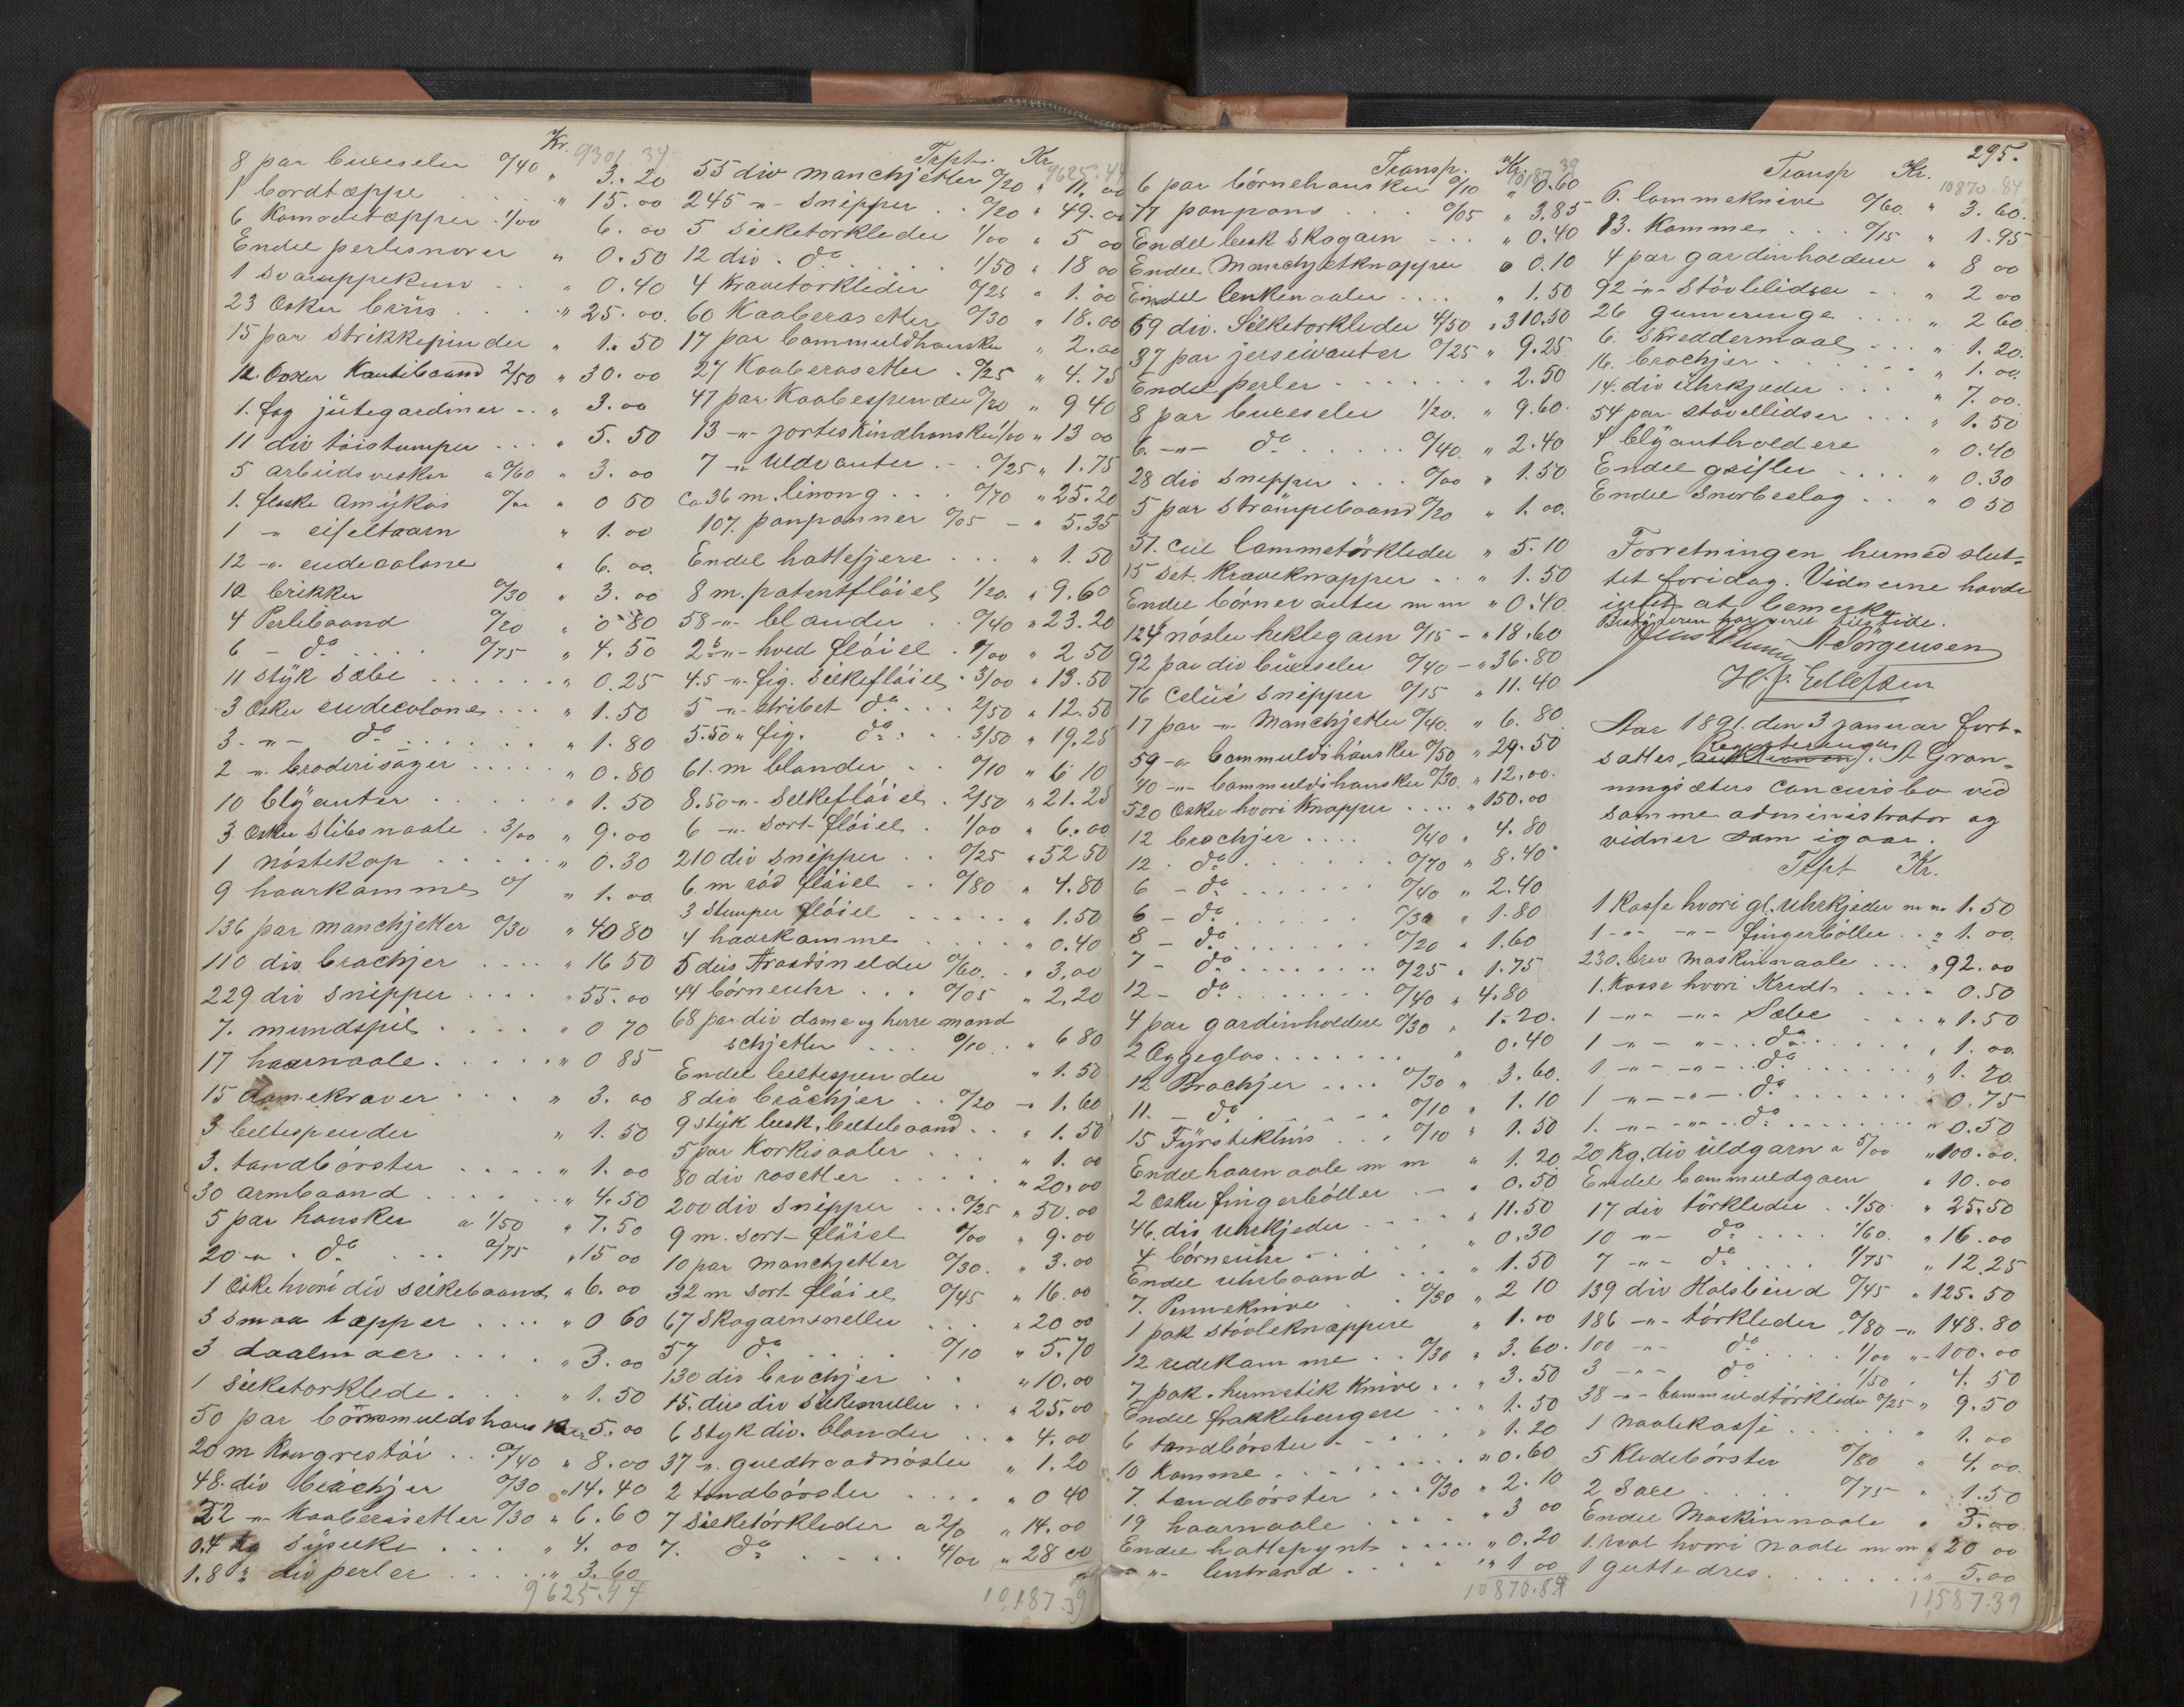 Kr. 9301.34
8 par buxeseler 0/40 " 3.20
1 bordtæppe . . . " 15.00
6 Komodetæpper . 1/00 6.00
Endel perlesnorer " 0.50
1 svampekurv . . " 0.40
23 Æsker brüs . . . " 25.00.
15 par strikkepinder " 1.50
12. boxer Kantebaand 2/50 " 30.00
1. fag jütegardiner . . " 3.00
11 div töistumper . . . " 5.50
5 arbeidsvesker a 0/60 " 3.00
1. flaske Amykos " 0 50
1 -"- eifeltaarn " 1.00
12 -"- eudecolone " 6.00.
10 brikker 0/30 " 3.00
4 Perlebaand 0/20 " 0 80
6 - do . . . . 0/75 " 4.50
11 styk sæbe . . . . . . " 0.25
3 Æsker eudecolone . . . " 1.50
3. -"- do . . . . . . " 1.80
2 -"- broderisager . . . . . " 0.80
10 blyanter . . . . . . " 1.50
3 Æsker slibsnaale . 3/00 " 9.00
1 nöstekop . . . . . " 0.30
9 haarkamme 0/ " 1.00
136 par manchjetter 0/30 " 40 80
110 div. brochjer . . . . " 16 50
229 div snipper . . . . " 55.00
7. mundspil . . . . " 0 70
17 haarnaale . . . . . " 0 85
15 damekraver . . . " 3.00
3 beltespender " 1.50
3. tandbörster . . . . . " 1.00
30 armbaand . . . . . . " 4.50
5 par hansker a 1/50 " 7.50
20 -"- do . . . 0/75 " 15 00
1 Æske hvori div silkebaand " 6.00
3 smaa tæpper . . . . " 0 60
3 daalmaer . . . . " 3.00
1 silketorklede . . . . " 1.50
50 par bommuldshansker 5.00
20 m Kongrestöi . . 0/40 " 8.00
48. div brochjer 0/30 " 14.40
22 -"- Kaaberosetter 0/30 " 6.60
0.4 kg sysilke . . . . " 4.00
1.8 " div perler . . . . " 3.60
9625.44
Trpt. Kr 9625.44
55 div manchjetter 0/20 " 11.00
245 -"- snipper . . 0/20 " 49.00
5 silketorkleder 1/00 " 5 00
12 div . do . . . . 1/50 " 18 00
4 Kravetorkleder 0/25 " 1.00
60 Kaaberosetter 0/30 " 18.00
17 par bommuldhansker " 2.00
27 Kaaberosetter . 0/25 " 4.75
47 par Kaabespender 0/20 " 9 40
13 -"- hansker 1/00 " 13 00
7 -"- Uldvanter . - . 0/25 " 1.75
Ca 36 m. linong . . . 0/70 " 25.20
107. panpanner 0/05 - " 5.35
Endel hattefjere . . . " 1.50
8 m. patentflöiel 1/20. " 9.60
58 -"- blonder . . 0/40 " 23.20
2 5 -"- hvid flöiel . 1/00 " 2 50
4.5 -"- fig. silkeflöiel . 3/00 " 13.50
5 -"- stribet do . . . 2/50 " 12.50
5.50 " fig. do . . . 3/50 " 19.25
61. m blonder . . 0/10 " 6 10
8.50 -"- silkeflöiel . 2/50 " 21.25
6 -"- sort flöiel . 1/00 " 6.00
210 div snipper . . 0/25 " 52 50
6. m röd flöiel . . 0/80 " 4.80
3 stumper flöiel . . . . . " 1.50
4 haarkamme . . . . . " 0.40
5 dus Traadsnelder 0/60. . " 3.00
44 börneuhr . . . 0/05 " 2.20
68 par div dame og herre mand
schjetter . . . 0/10 . " 6 80
Endel beltespender " 1.50
8 div bråchjer . . 0/20 - 1.60
9 styk besk. beltebaand . . " 1.50
5 par Korksaaler . . . " 1.00
80 div rosetter . . . . . " 20.00
200 div snipper . . . 0/25 " 50.00
9 m. sort flöiel 1/00 " 9.00
10 par manchjetter 0/30. " 3.00
32 m sort flöiel 0/45 " 16.00
67 Skogarnsneller . . . " 20 00
57 do . . . . . 0/10 " 5.70
130 div brochjer . . " 10.00
15. dus div silkesneller . . " 25.00
6 styk div. blonder . . " 4.00
37 -"- guldtraadnöster " 1.20
2 tandbörster . . . . " 0 40
7 silketörkleder a 2/0 " 14.00
7. do . . . . 4/00 " 28 00
10,187.39
Transp. Kr. 10187.39
6 par börnehansker 0/10 " 0.60
77 panpons . . . . 0/05 " 3.85
Endel besk skogarn . . . " 0.40
Endel Manchjetknapper " 0.10
Endel lenkenaaler . . . . " 1.50
69 div. Silketorkleder 4/50 " 310.50
37 par jerseivanter 0/25 " 9.25
Endel perler . . . . . . " 2.50
8 par buxeseler 1/20. " 9.60.
6. -"- do . . . . . 0/40. " 2.40
28 div snipper . . . 0/00 " 1.50
5 par strömpebaand 0/20 " 1.00.
51. cul lommetörkleder " 5.10
15 set. Kraveknapper . . " 1.50
Endel börnevanter m m " 0.40.
124 nöster heklegarn 0/15 - " 18.60
92 par div buxeseler 0/40 - " 36.80
76 celui snipper 0/15 " 11.40
17 par -"- Manchjetter 0/40. " 6.80
59 -"- bommuldshansker 0/50 " 29.50
40 -"- bommuldshansker 0/30. " 12.00.
520 Æsker hvori Knapper . . . . " 150.00
12 brochjer . . . . 0/40 " 4.80
12 . do . . . . . . . 0/70 " 8.40
6 - do . . . . . . . 0/40 " 2.40
6 - do . . . . . . 0/30 " 1.80
8 - do . . . . . . . 0/20 " 1.60
7 - do . . . . . . . 0/25 " 1.75
12 - do . . . . . . . 0/40 " 4.80
4 par gardinholdere 0/30 " 1.20.
2 Æggeglas . . . . . . . " 0.40
12 Brochjer . . . . 0/30 " 3.60.
11. - do . . . . . . 0/10 " 1.10
15 Fyrstikhus . . . 0/10 " 1.50
Endel haarnaale m m " 1.20
2 Æsker fingerböller . - " 0.50
46. div uhrkjeder . . . . " 11.50
4 börneuhr - . . . . . " 0.30
Endel uhrbaand . . . " 1.50
7. Penneknive . . 0/30 " 2 10
1 pak stövleknappere " 1.00
12 redekamme . . 0/30 " 3.60.
7 pak. hermetik Knive . . " 3.50
Endel frakkehengere . . " 1.50
6 tandbörster . . . . . " 1.20
10 Kamme . . . . . . . " 0.60
7. tandbörster . . . 0/30 " 2.10
19 haarnaale . . . . " 3 00
Endel hattepynt . . . . . " 0.20
" -"- . . . . " 1 00
10870.84
295.
Transp Kr. 10870.84
6. lommeknive 0/60. " 3.60.
13. Kamme . . . 0/15 " 1.95
4 par gardinholdere " 8 00
92 -"- stövlelidser - . " 2 00
26 gumeringe . . . . " 2 60
6. Skreddermaal . . . " 1.20.
16. brochjer . . . . . . . " 1.00.
14. div uhrkjeder . . . " 7.00.
54 par stövellidser . . . " 1.50
4 blyantholdere " 0.40
Endel grifler . . . . " 0.30
Endel snorbeslag . . " 0 50
Forretningen hermed slut-
tet foridag. Vidnerne havde
intet at bemerke
Bestyreren har veret tilstede.
A Sörgensen
H. J. Ellefsen
Aar 1891. den 3 januar fort-
sattes Registreringen auktionen. A Gran-
ningsæters concursbo ved
samme administrator og
vidner som igaar.
Trpt Kr.
1 Kasse hvori gl. uhrkjeder m m 1.50
1 -"- -"- fingerböller . . " 1.00.
230. brev maskinnaale . . . " 92.00
1. Kasse hvori Kridt . . . . 0.50
1 -"- -"- Sæbe . . . . " 1.50
1 -"- -"- . . do . . . . . . " 1.00.
1 -"- -"- . . do . . . . . . " 1.20
1 -"- -"- . do . . . . . . " 0.75
1. -"- -"- . do . . . . . . . " 0.50
20 Kg. div uldgarn a 5/00 " 100.00.
Endel bommuldgarn " 10.00
17 div törkleder . . 1/50 " 25.50
10 -"- do . . . . 1/60. " 16.00
7 -"- do . . . . 1/75 " 12.25
139 div Halsbind 0/45 " 125.50
186 -"- törkleder 0/80 -"- 148.80
100 -"- do . . . . 1/00 " 100.00
3 -"- do . . . . 1/50 " 4.50
38 -"- bommuldtörkleder 0/25 " 9.50
1 naalekasse . . . . . . " 1.00
5 Kledebörster 0/80 " 4.00.
2 Sace . . . . . 0/75 " 1.50
Endel Maskinnaale " 3.00.
1. hvori naale m m " 20 00
1 guttedres . . . . . . . " 5.00
11,587.39